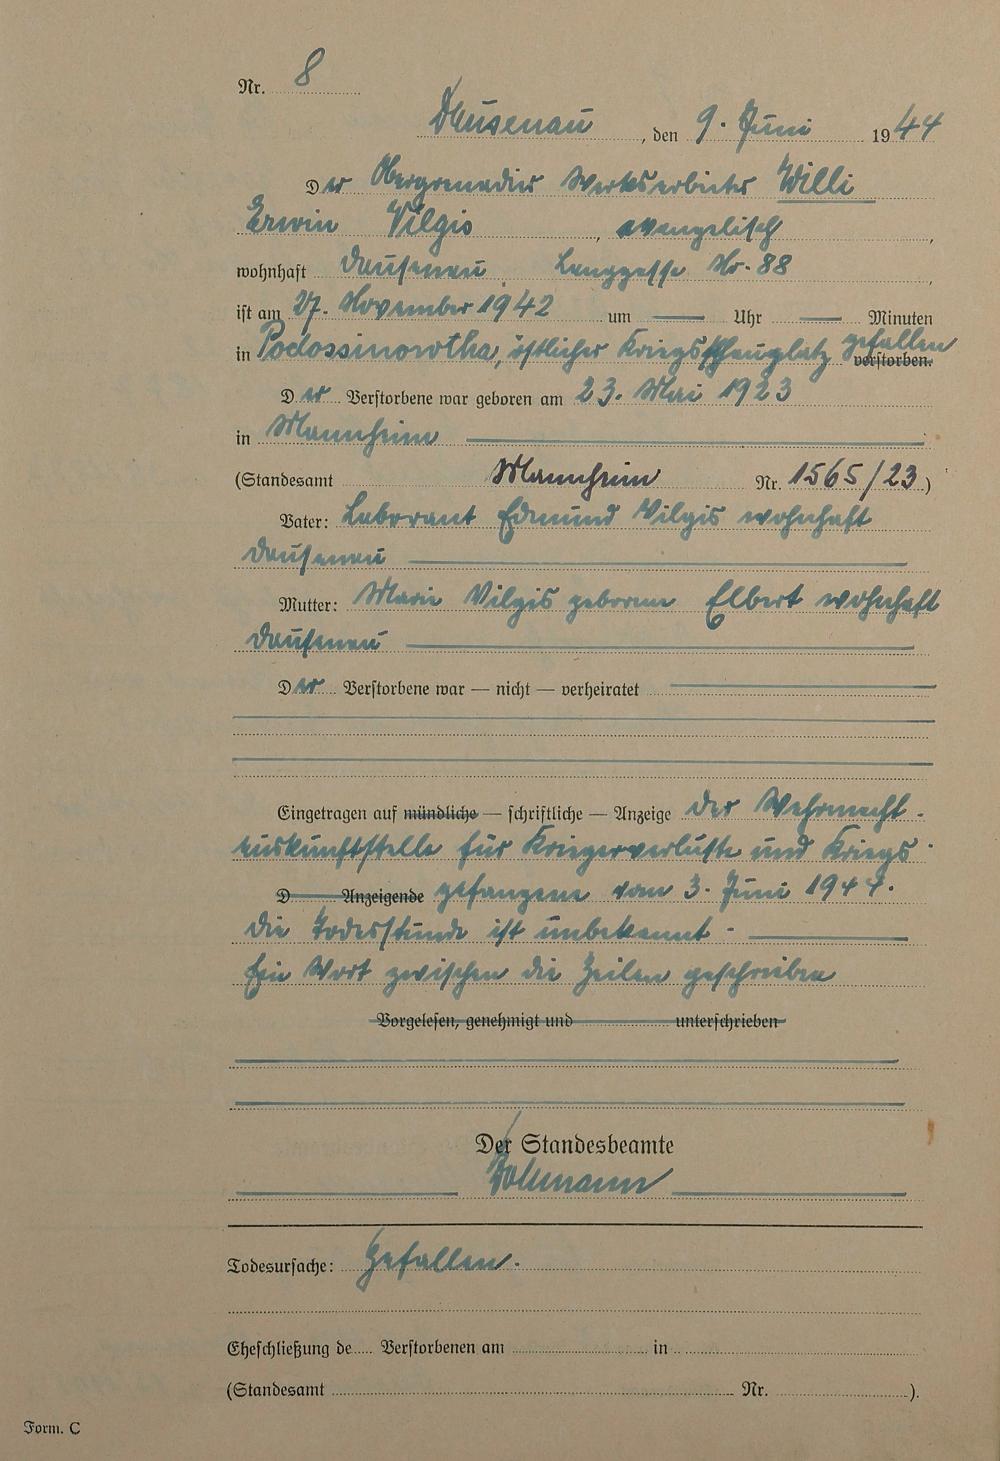 Nr. 8
Dausenau, den 9. Juni 1944
Der Obergrenadier Werksarbeiter Willi
Erwin Vilgis, evangelisch,
wohnhaft Dausenau Langgasse Nr. 88,
ist am 27. November 1942 um — Uhr — Minuten
in östlicher Kriegsschauplatz gefallen verstorben.
Der Verstorbene war geboren am 23. Mai 1923
in Mannheim
(Standesamt Mannheim Nr. 1565/23)
Vater: Laborant Edmund Vilgis wohnhaft
Dausenau
Mutter: Marie Vilgis geborene Elbert wohnhaft
Dausenau
Der Verstorbene war — nicht — verheiratet
Eingetragen auf mündliche — schriftliche — Anzeige der Wehrmacht-
auskunftstelle für Kriegerverluste und Kriegs-
D Anzeigende gefangene vom 3. Juni 1944.
Die Todesstunde ist unbekannt -
Ein Wort zwischen die Zeilen geschrieben
Vorgelesen, genehmigt und unterschrieben
Der Standesbeamte
Todesursache: Gefallen.
Eheschließung de Verstorbenen am in
(Standesamt Nr. ).
Form. C